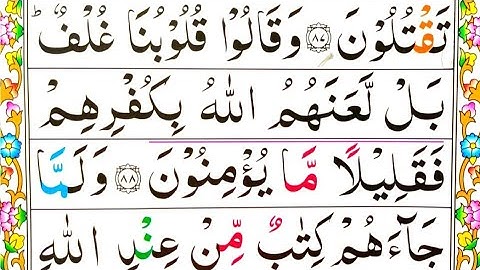 تَقْتُلُوْنَ ﴿۸۷﴾ وَقَالُوْا قُلُوْبُنَا غُلْفٌ ؕ
بَلْ لَّعَنَهُمُ اللّٰهُ بِكُفْرِهِمْ
فَقَلِيْلًا مَّا يُؤْمِنُوْنَ ﴿۸۸﴾ وَلَمَّا
جَآءَهُمْ كِتٰبٌ مِّنْ عِنْدِ اللّٰهِ